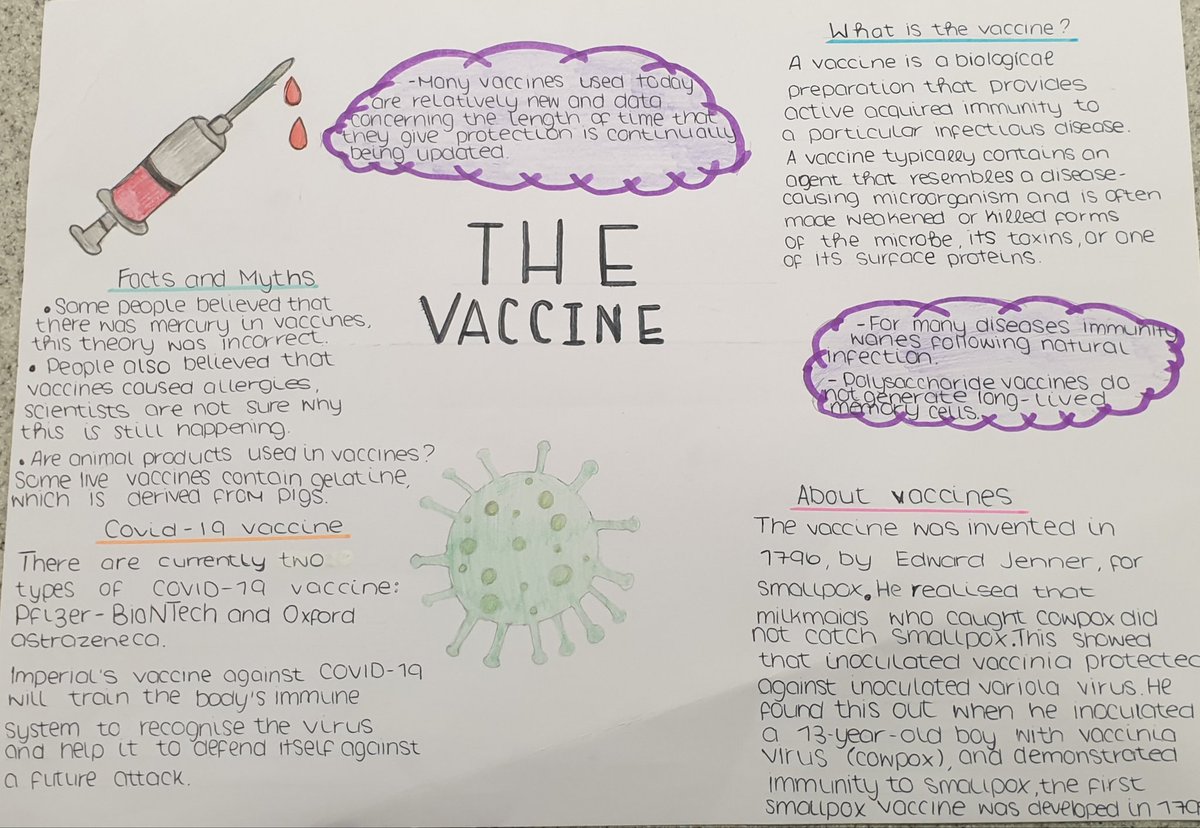 -Many vaccines used today
are relatively new and data
concerning the length of time that
they give protection is continually
being updated.
THE
VACCINE
Facts and Myths
• Some people believed that
there was mercury in vaccines,
this theory was incorrect.
• People also believed that
vaccines caused allergies,
scientists are not sure why
this is still happening.
• Are animal products used in vaccines?
Some live vaccines contain gelatine,
which is derived from pigs.
Covid-19 vaccine
There are currently two
types of COVID-19 vaccine:
Pfizer-BioNTech and Oxford
astrazeneca.
Imperial's vaccine against COVID-19
will train the body's immune
system to recognise the virus
and help it to defend itself against
a future attack.
What is the vaccine?
A vaccine is a biological
preparation that provides
active acquired immunity to
a particular infectious disease.
A vaccine typically contains an
agent that resembles a disease-
causing microorganism and is often
made weakened or killed forms
of the microbe, its toxins, or one
of its surface proteins.
-For many diseases immunity
wanes following natural
infection.
- Polysaccharide vaccines do
not generate long-lived
memory cells.
About vaccines
The vaccine was invented in
1796, by Edward Jenner, for
smallpox. He realised that
milkmaids who caught cowpox did
not catch smallpox. This showed
that inoculated vaccinia protected
against inoculated variola virus. He
found this out when he inoculated
a 13-year-old boy with vaccinia
virus (cowpox), and demonstrated
immunity to smallpox, the first
smallpox vaccine was developed in